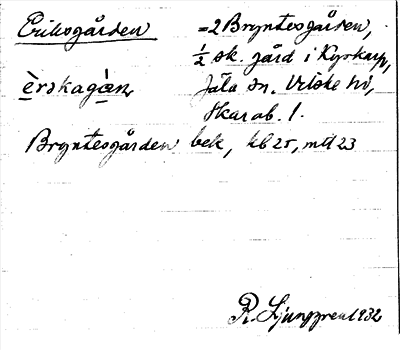 Eriksgården = 2 Bryntesgården,
1/2 sk. gård i Kyrkarp,
èrskagàn Jäla sn. Vilske hd,
Skarab. l.
Bryntesgården bek, kb 25, mtl 23
R. Ljunggren 1932